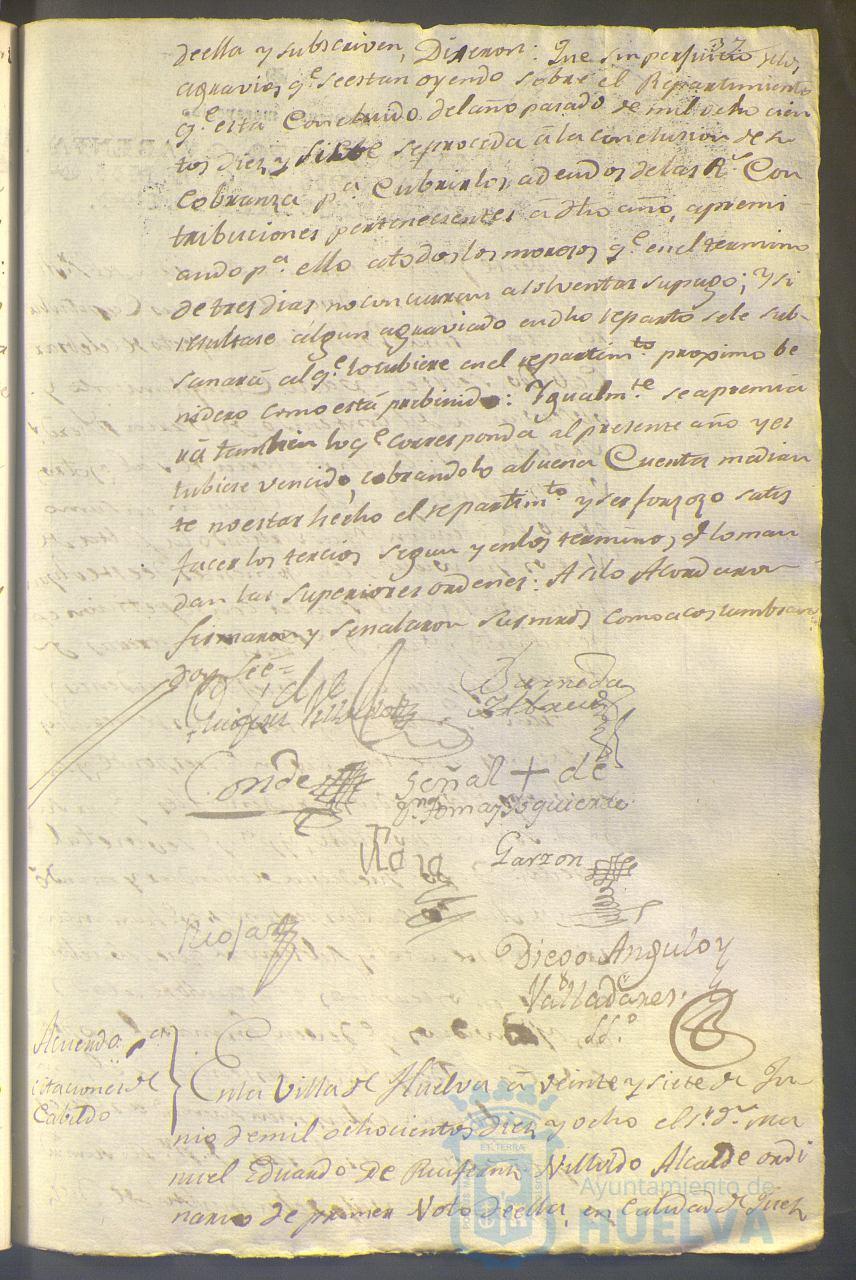 37
de ella y subscriven, Dixeron: Que sin perjuicio de los
agravios, q.e se estan oyendo sobre el Repartimiento
q.e está Concluido del año pasado de mil ocho cien
tos diez, y siete se proceda á la conclusion de su
Cobranza p.a Cubrir los adeudos de las R.s Con
tribuciones pertenecientes á dho año, apremi
ando p.a ello a todos los morosos q.e en el termino
de tres dias no concurran a solventar su pago; y si
resultase algun agraviado en dho reparto se le sub-
sanará al q.e lo tubiere en el repartim.to proximo be
nidero como está prebenido: Igualm.te se apremia
rá tambien lo q.e corresponda al presente año y es
tubiese vencido, cobrandolo a buena Cuenta median
te no estar hecho el repartim.to y ser forzozo satis
facer los tercios segun y en los terminos q.e lo man
dan las superiores ordenes: Asi lo Acordaron
firmaron y señalaron sus mrds como acostumbran
doy feé=
Barreda
Conde
señal + de
d.n Tomas Yzquierdo
Garzon
Rioja
Diego Angulo y
Valladares.
SS.o
Acuerdo p.a
citaciones de
Cabildo
En la Villa de Huelva á veinte y siete de Ju
nio de mil ochocientos diez y ocho el s.r d.n Ma
nuel Eduardo De Alcalde ordi
nario de primer Voto de ella, en Calidad de Juez
Ayuntamiento de
HUELVA